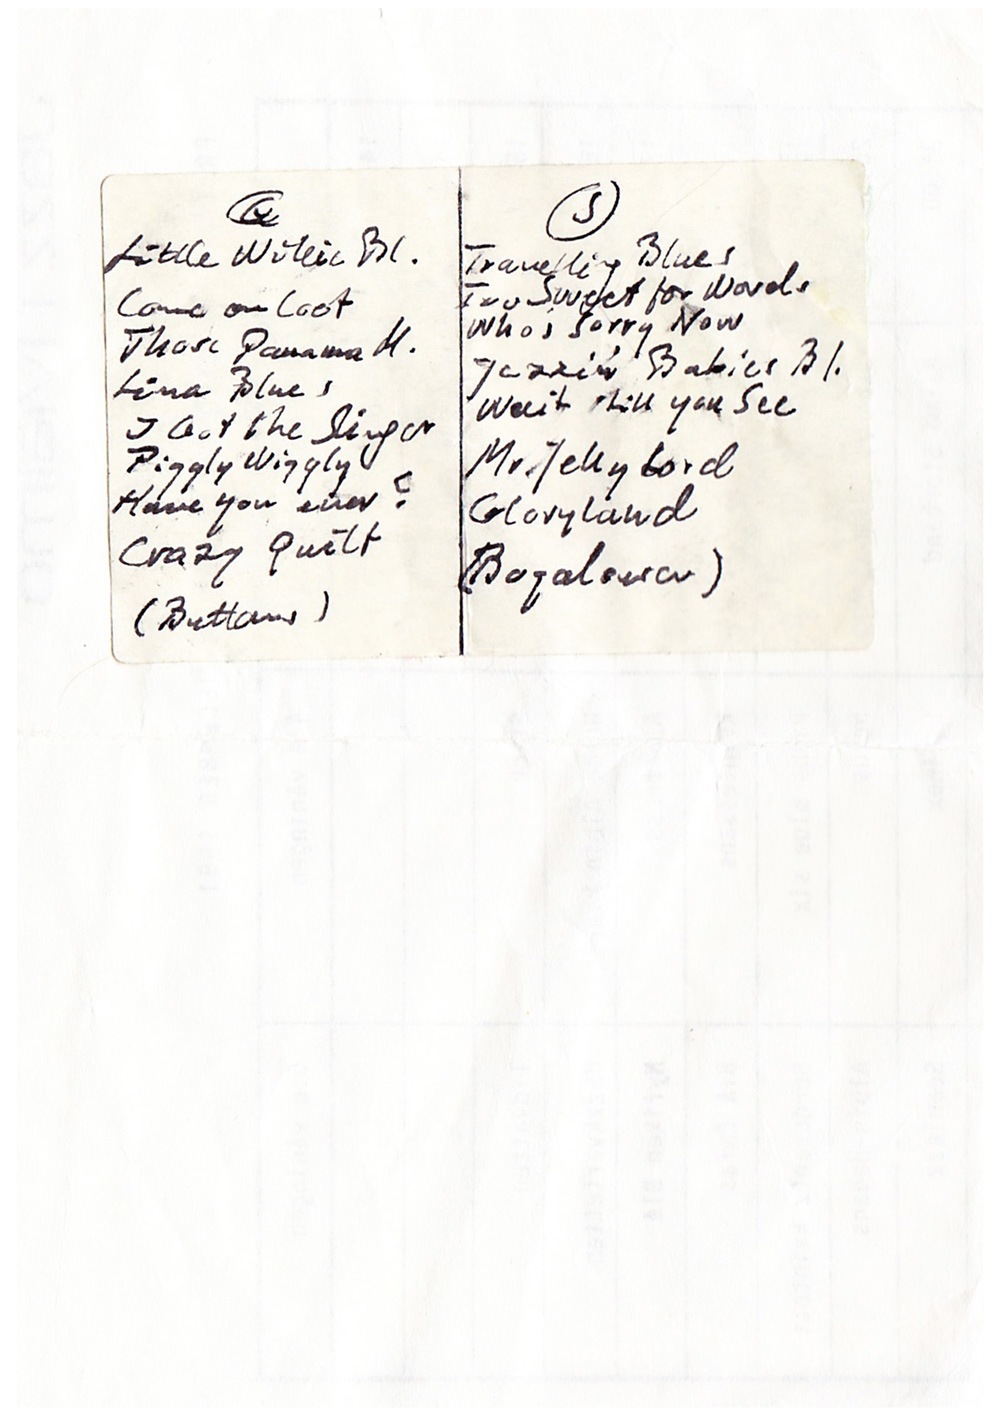 4
Little Willie Bl.
Come on Coot
Those Panama M.
Lina Blues
I Got the Stinger
Piggly Wiggly
Have you ever?
Crazy Quilt
(Buttons)
5
Travelling Blues
Too Sweet for Words
Who's Sorry Now
Jazzin' Babies Bl.
Wait till you See
Mr. Jelly Lord
Gloryland
(Bogalousa)